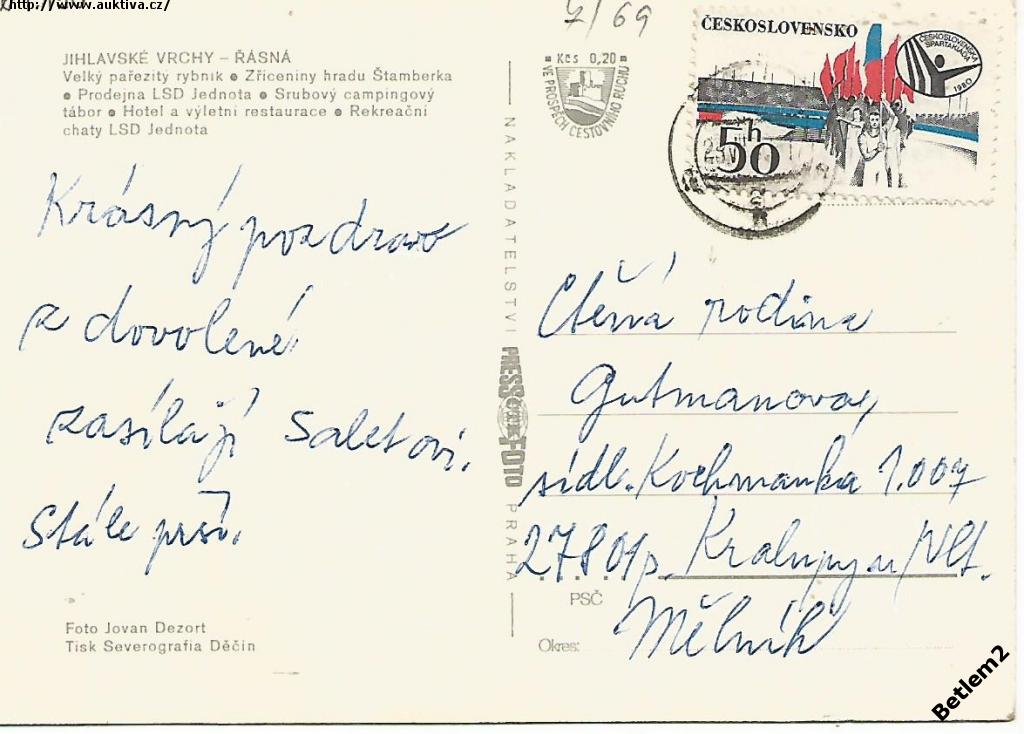 http://www.auktiva.cz/
7/69
JIHLAVSKÉ VRCHY – ŘÁSNÁ
Velký pařezitý rybník ● Zříceniny hradu Štamberka
● Prodejna LSD Jednota ● Srubový campingový
tábor ● Hotel a výletní restaurace ● Rekreační
chaty LSD Jednota
Krásný pozdrav
z dovolené
zasílají Saletovi.
Stále prší.
Foto Jovan Dezort
Tisk Severografia Děčín
Kčs 0,20
VE PROSPĚCH CESTOVNÍHO RUCHU
NAKLADATELSTVÍ PRESSFOTO PRAHA
ČESKOSLOVENSKO
ČESKOSLOVENSKÁ
SPARTAKIÁDA
1980
50h
Ctěná rodina
Gutmanova,
sídl. Kochmanka 1.007
27801 p. Kralupy n/Vlt.
PSČ
Okres: Mělník
Betlem2